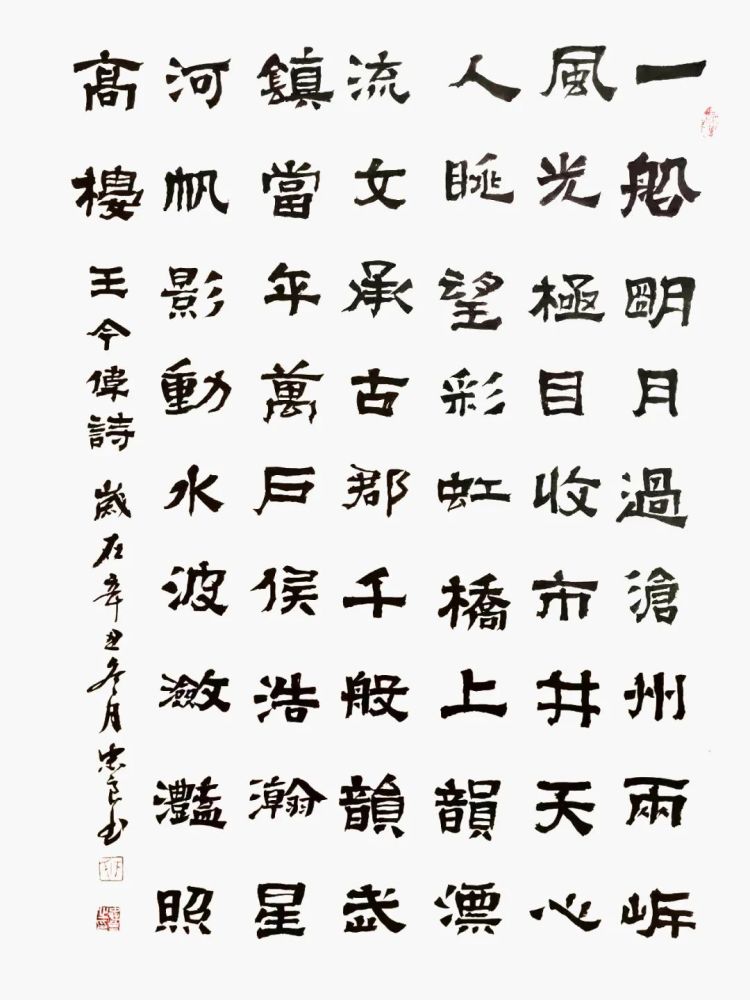 一船明月過滄州兩岸
風光極目收市井天心
人眺望彩虹橋上韻漂
流女承古郡千般韻武
鎮當年萬戶侯浩瀚星
河帆影動水波瀲灩照
髙樓 王今偉詩 歲在辛丑冬月忠良书